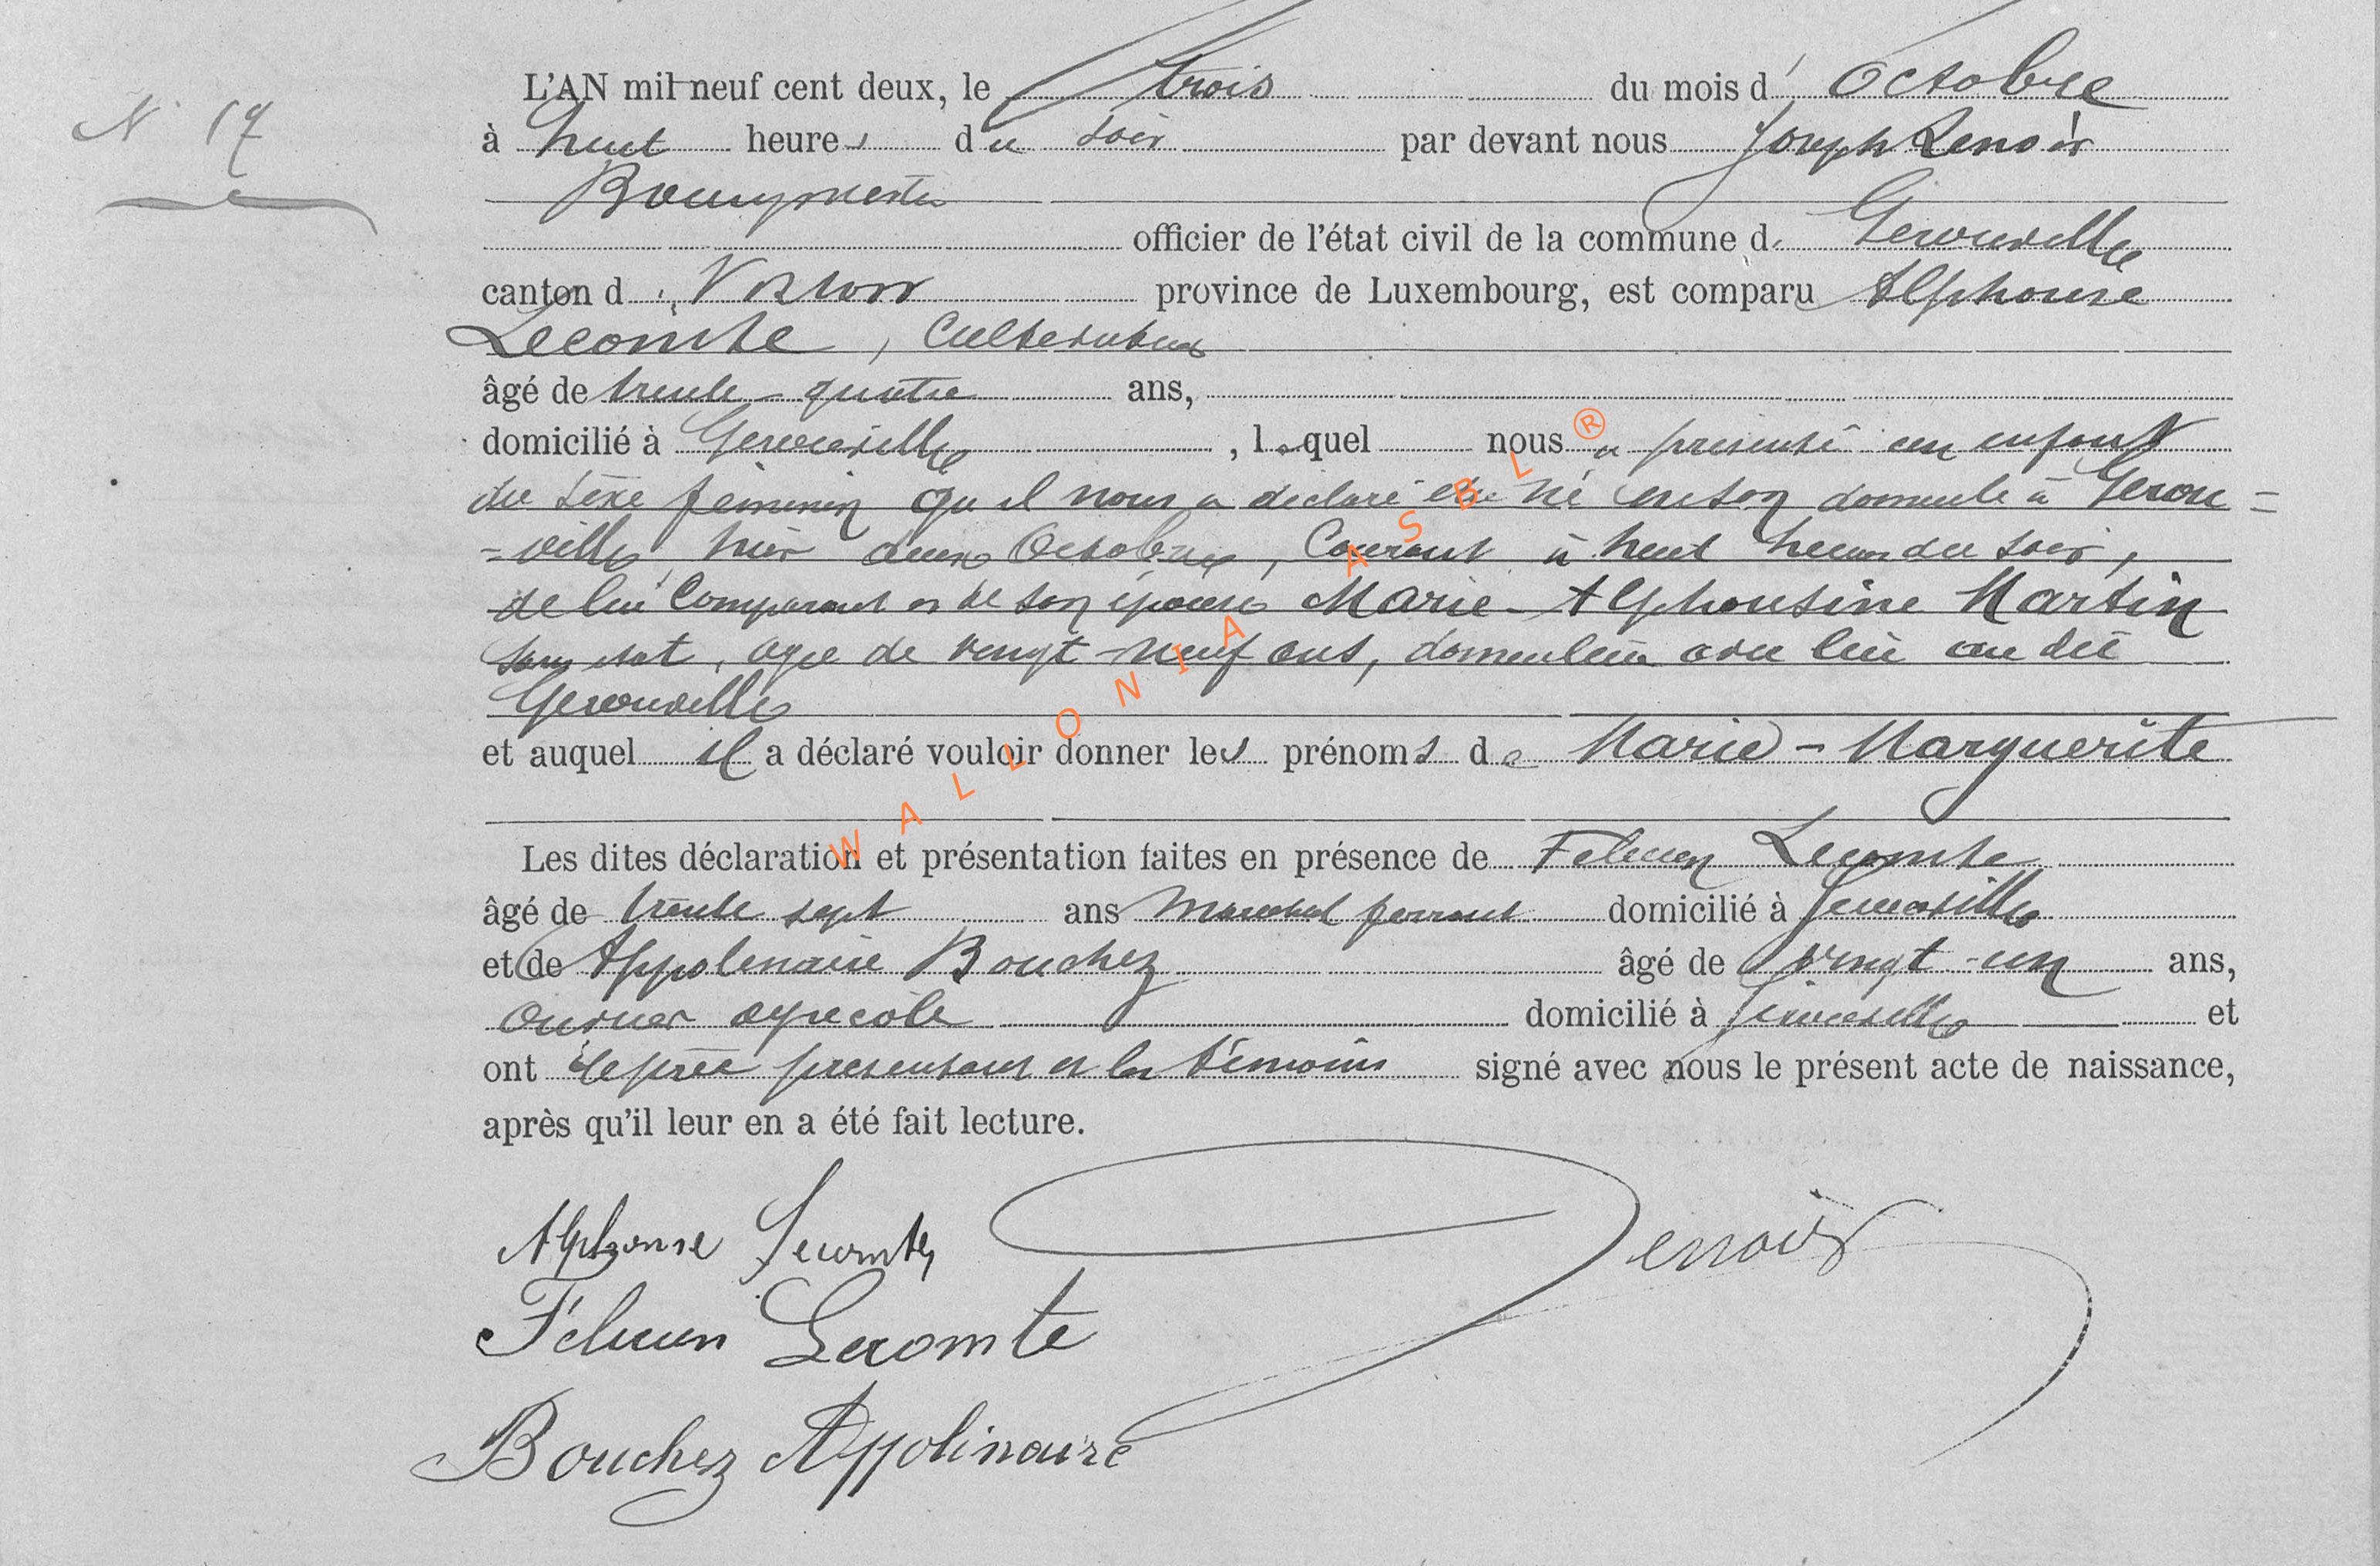 N° 17
L'AN mil neuf cent deux, le trois du mois d'Octobre
à huit heures du soir par devant nous Joseph Lenoir
Bourgmestre
officier de l'état civil de la commune de Gerouville
canton de Virton province de Luxembourg, est comparu Alphonse
Lecomte, Cultivateur
âgé de trente-quatre ans,
domicilié à Gerouville, lequel nous a présenté un enfant
du sexe féminin qu'il nous a déclaré être né en son domicile à Gerou=
=ville, hier deux Octobre, Courant à huit heures du soir,
de lui Comparant et de son épouse Marie-Alphonsine Martin
sans état, agée de vingt-neuf ans, domiciliée avec lui au dit
Gerouville
et auquel il a déclaré vouloir donner les prénoms de Marie-Marguerite
Les dites déclaration et présentation faites en présence de Felicien Lecomte
âgé de trente sept ans Maréchal ferrant domicilié à Gerouville
et de Appolinaire Bouchez âgé de vingt-un ans,
Ouvrier agricole domicilié à Gerouville et
ont le père présentant et les témoins signé avec nous le présent acte de naissance,
après qu'il leur en a été fait lecture.
Alphonse Lecomte Lenoir
Félicien Lecomte
Bouchez Appolinaire
WALLONIA ASBL ®